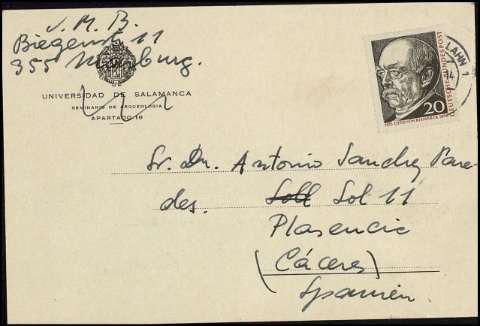 J. M. B.
Biegenstr 11
355 Marburg.
UNIVERSIDAD DE SALAMANCA
SEMINARIO DE ARQUEOLOGIA
APARTADO 19
DEUTSCHE BUNDESPOST
20
LAHN 1
Sr. Dn. Antonio Sanchez Pare-
des. Soll Sol 11
Plasencia
(Cáceres)
Spanien.